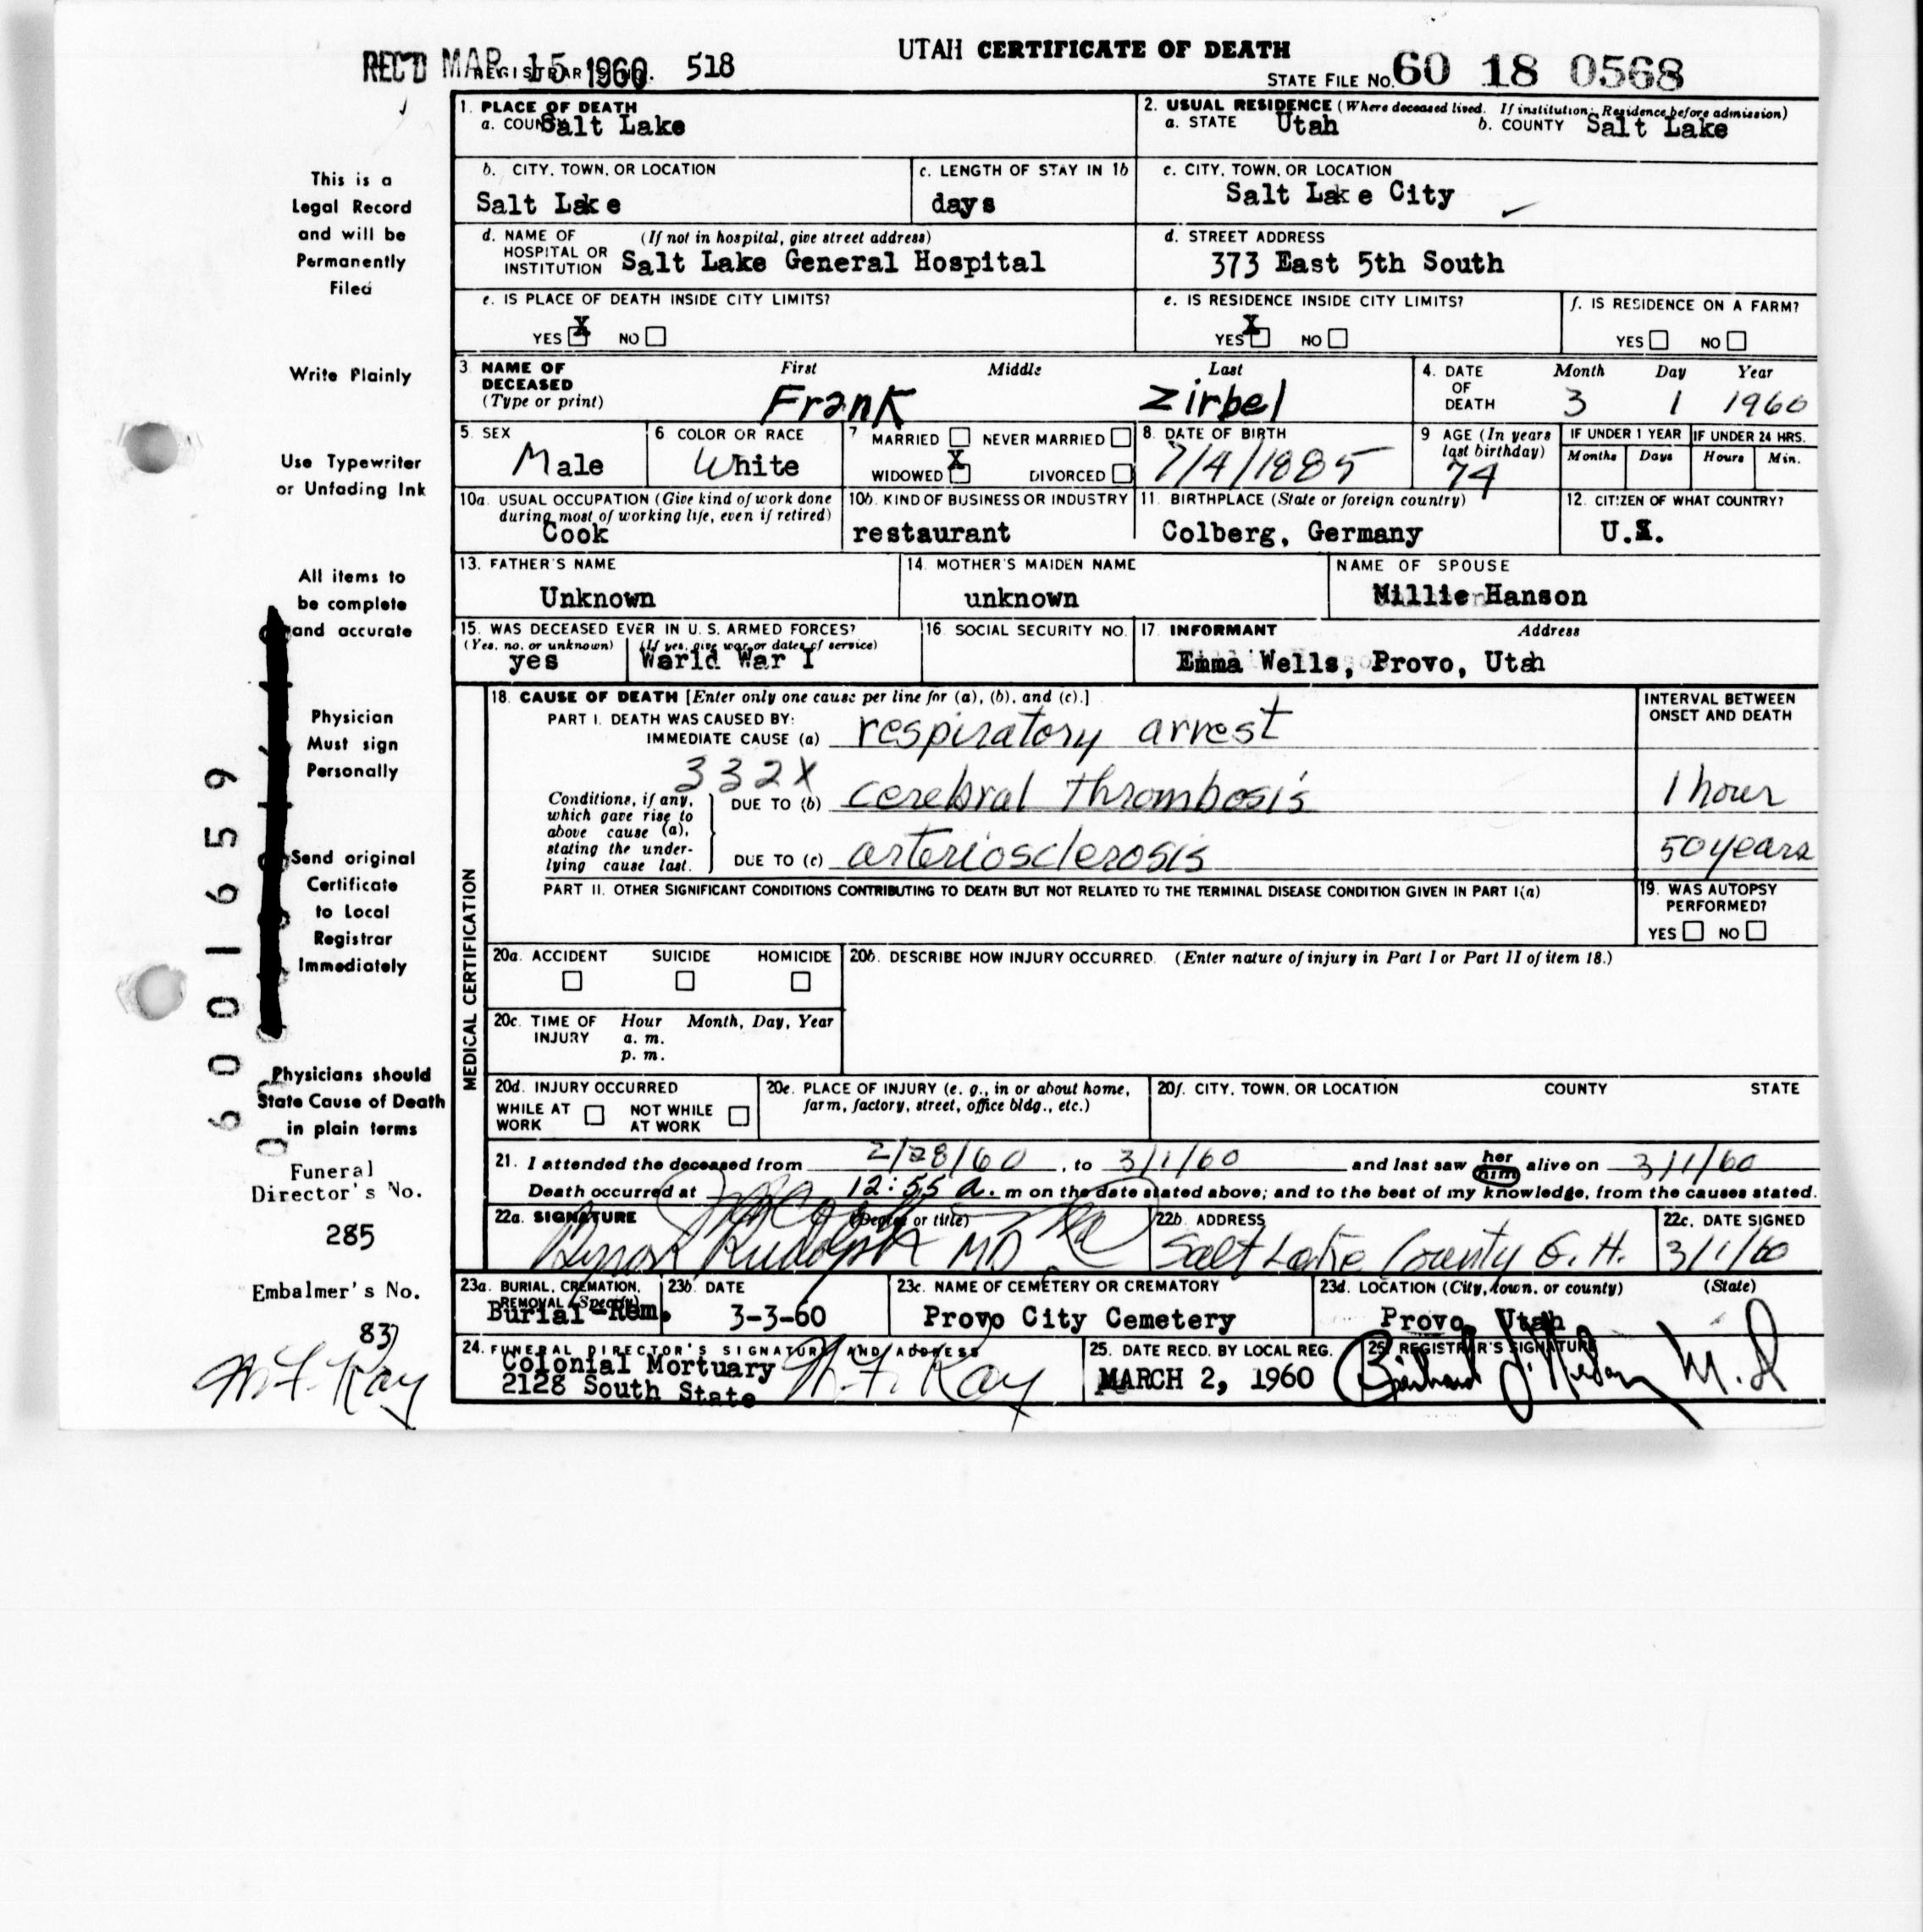 UTAH CERTIFICATE OF DEATH
REC'D MAR 15 1960 REGISTRAR'S NO. 518
STATE FILE NO. 60 18 0568
1. PLACE OF DEATH
a. COUNTY Salt Lake
2. USUAL RESIDENCE (Where deceased lived. If institution: Residence before admission)
a. STATE Utah b. COUNTY Salt Lake
b. CITY, TOWN, OR LOCATION
Salt Lake
c. LENGTH OF STAY IN 1b
days
c. CITY, TOWN, OR LOCATION
Salt Lake City
d. NAME OF HOSPITAL OR INSTITUTION (If not in hospital, give street address)
Salt Lake General Hospital
d. STREET ADDRESS
373 East 5th South
e. IS PLACE OF DEATH INSIDE CITY LIMITS?
YES X NO
e. IS RESIDENCE INSIDE CITY LIMITS?
YES X NO
f. IS RESIDENCE ON A FARM?
YES NO
3. NAME OF DECEASED (Type or print)
First Middle Last
Frank Zirbel
4. DATE OF DEATH
Month Day Year
3 1 1960
5. SEX
Male
6 COLOR OR RACE
White
7 MARRIED NEVER MARRIED
WIDOWED X DIVORCED
8. DATE OF BIRTH
7/4/1885
9 AGE (In years last birthday)
74
IF UNDER 1 YEAR
Months Days
IF UNDER 24 HRS.
Hours Min.
10a. USUAL OCCUPATION (Give kind of work done during most of working life, even if retired)
Cook
10b. KIND OF BUSINESS OR INDUSTRY
restaurant
11. BIRTHPLACE (State or foreign country)
Colberg, Germany
12. CITIZEN OF WHAT COUNTRY?
U.S.
13. FATHER'S NAME
Unknown
14. MOTHER'S MAIDEN NAME
unknown
NAME OF SPOUSE
Millie Hanson
15. WAS DECEASED EVER IN U. S. ARMED FORCES?
(Yes, no, or unknown) (If yes, give war or dates of service)
yes Warld War I
16. SOCIAL SECURITY NO.
17. INFORMANT Address
Emma Wells, Provo, Utah
MEDICAL CERTIFICATION
18. CAUSE OF DEATH [Enter only one cause per line for (a), (b), and (c).]
INTERVAL BETWEEN ONSET AND DEATH
PART I. DEATH WAS CAUSED BY:
IMMEDIATE CAUSE (a) respiratory arrest
332X
Conditions, if any, which gave rise to above cause (a), stating the underlying cause last.
DUE TO (b) cerebral thrombosis 1 hour
DUE TO (c) arteriosclerosis 50 years
PART II. OTHER SIGNIFICANT CONDITIONS CONTRIBUTING TO DEATH BUT NOT RELATED TO THE TERMINAL DISEASE CONDITION GIVEN IN PART I(a)
19. WAS AUTOPSY PERFORMED?
YES NO
20a. ACCIDENT SUICIDE HOMICIDE
20b. DESCRIBE HOW INJURY OCCURRED. (Enter nature of injury in Part I or Part II of item 18.)
20c. TIME OF INJURY Hour Month, Day, Year
a. m.
p. m.
20d. INJURY OCCURRED
WHILE AT WORK NOT WHILE AT WORK
20e. PLACE OF INJURY (e. g., in or about home, farm, factory, street, office bldg., etc.)
20f. CITY, TOWN, OR LOCATION COUNTY STATE
21. I attended the deceased from 2/28/60, to 3/1/60 and last saw her him alive on 3/1/60
Death occurred at 12:55 a. m on the date stated above; and to the best of my knowledge, from the causes stated.
22a. SIGNATURE (Degree or title)
Rudolph MD
22b. ADDRESS
Salt Lake County G. H.
22c. DATE SIGNED
3/1/60
23a. BURIAL, CREMATION, REMOVAL (Specify)
Burial-Rem.
23b. DATE
3-3-60
23c. NAME OF CEMETERY OR CREMATORY
Provo City Cemetery
23d. LOCATION (City, town, or county) (State)
Provo, Utah
24. FUNERAL DIRECTOR'S SIGNATURE AND ADDRESS
Colonial Mortuary
2128 South State
Kay
25. DATE RECD. BY LOCAL REG.
MARCH 2, 1960
REGISTRAR'S SIGNATURE
M.D
This is a
Legal Record
and will be
Permanently
Filed
Write Plainly
Use Typewriter
or Unfading Ink
All items to
be complete
and accurate
Physician
Must sign
Personally
Send original
Certificate
to Local
Registrar
Immediately
Physicians should
State Cause of Death
in plain terms
Funeral
Director's No.
285
Embalmer's No.
837
Kay
6001659